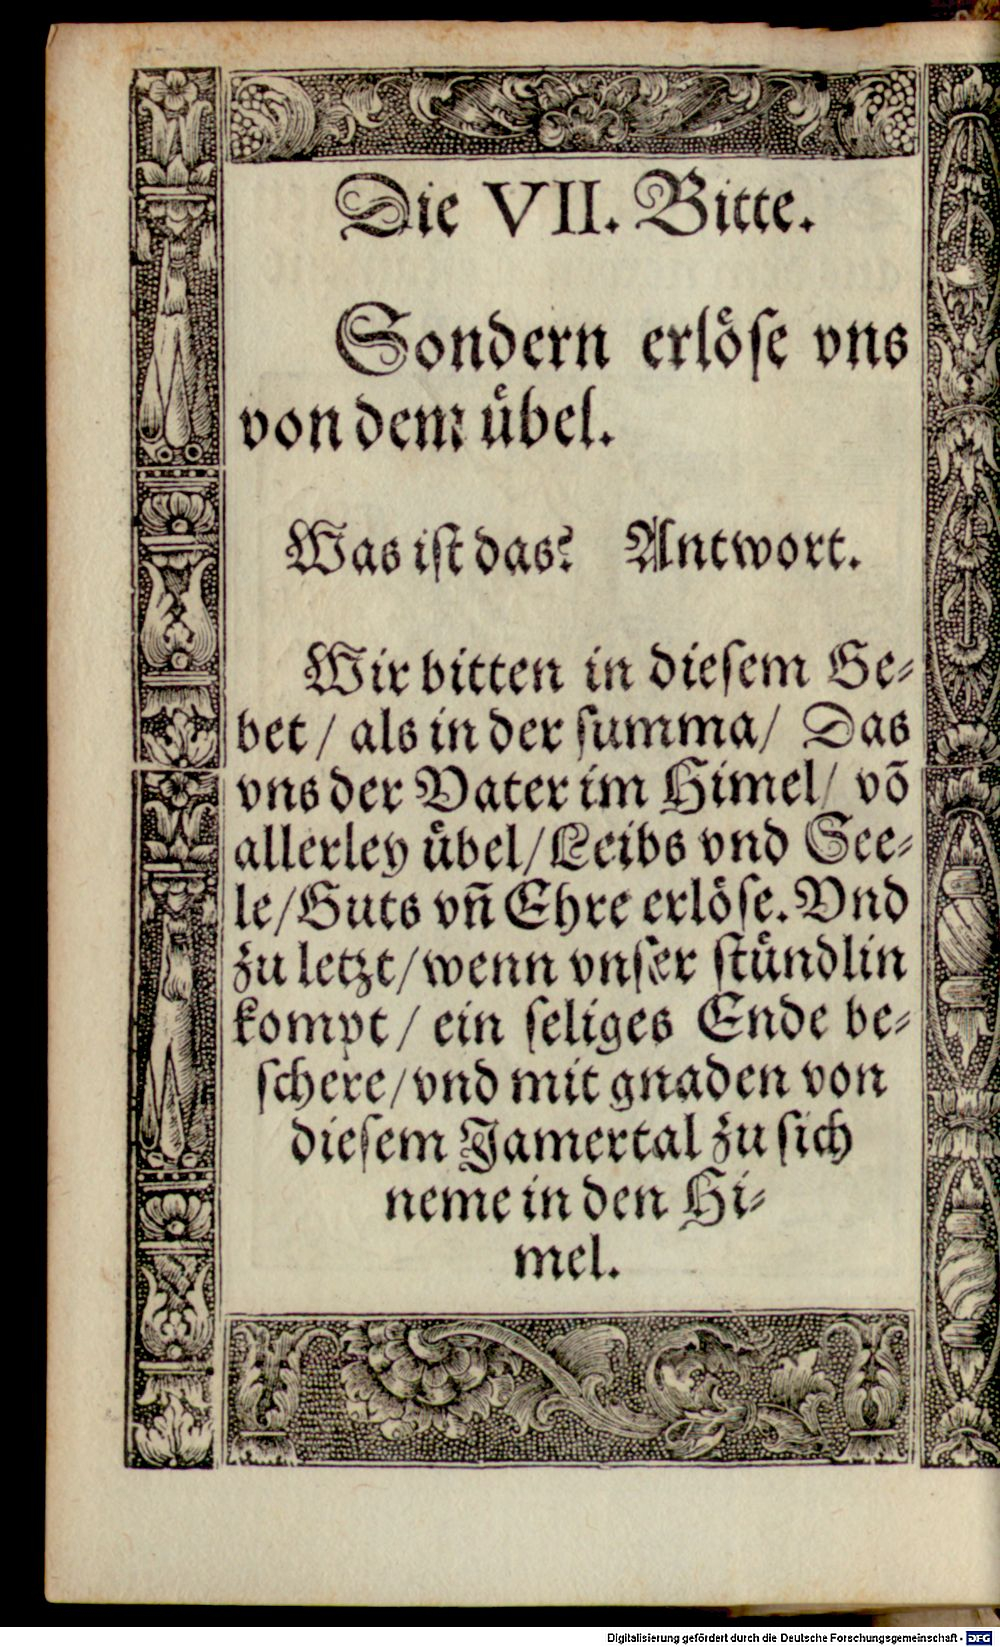 Die VII. Bitte.
Sondern erlöſe vns
von dem übel.
Was iſt das? Antwort.
Wir bitten in dieſem Ge⸗
bet / als in der ſumma / Das
vns der Vater im Himel / võ
allerley übel / Leibs vnd See⸗
le / Guts vñ Ehre erlöſe. Vnd
zu letzt / wenn vnſer ſtündlin
kompt / ein ſeliges Ende be⸗
ſchere / vnd mit gnaden von
dieſem Jamertal zu ſich
neme in den Hi⸗
mel.
Digitalisierung gefördert durch die Deutsche Forschungsgemeinschaft - DFG